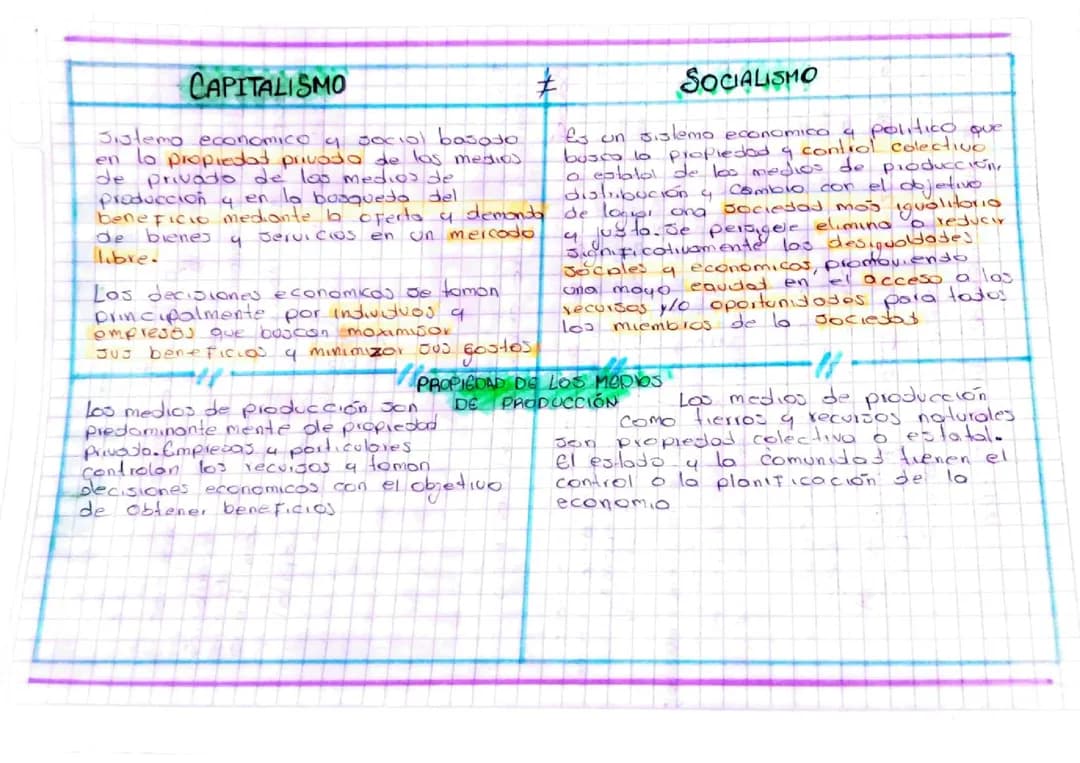 CAPITALISMO
≠
SOCIALISMO
Sistema economico y social basado
en la propiedad privada de las medios
de privado de las medios de
producción y en la busqueda del
beneficio mediante la oferta y demanda
de bienes y servicios en un mercado
libre.
Las decisiones economicas se toman
principalmente por individuos y
empresas que buscan maximisar
sus beneficios y minimizar sus gastos
Es un sistema economico y politico que
busca la propiedad y control colectivo
o estatal de los medios de producción,
distribución y cambio con el objetivo
de lograr una sociedad mas igualitaria
y justa. Se persigele elimina o reducir
significativamente las desigualdades
sociales y economicas, promoviendo
una mayo equidad en el acceso a las
recursos y/o oportunidades para todos
los miembros de la sociedad
PROPIEDAD DE LOS MEDIOS
DE PRODUCCIÓN
Los medios de producción son
predominante mente de propiedad
privada. Empresas y particulares
controlan los recursos y toman
decisiones economicas con el objetivo
de obtener beneficios
Los medios de producción
como tierras y recursos naturales
son propiedad colectiva o estatal.
El estado y la comunidad tienen el
control o la planificación de la
economia